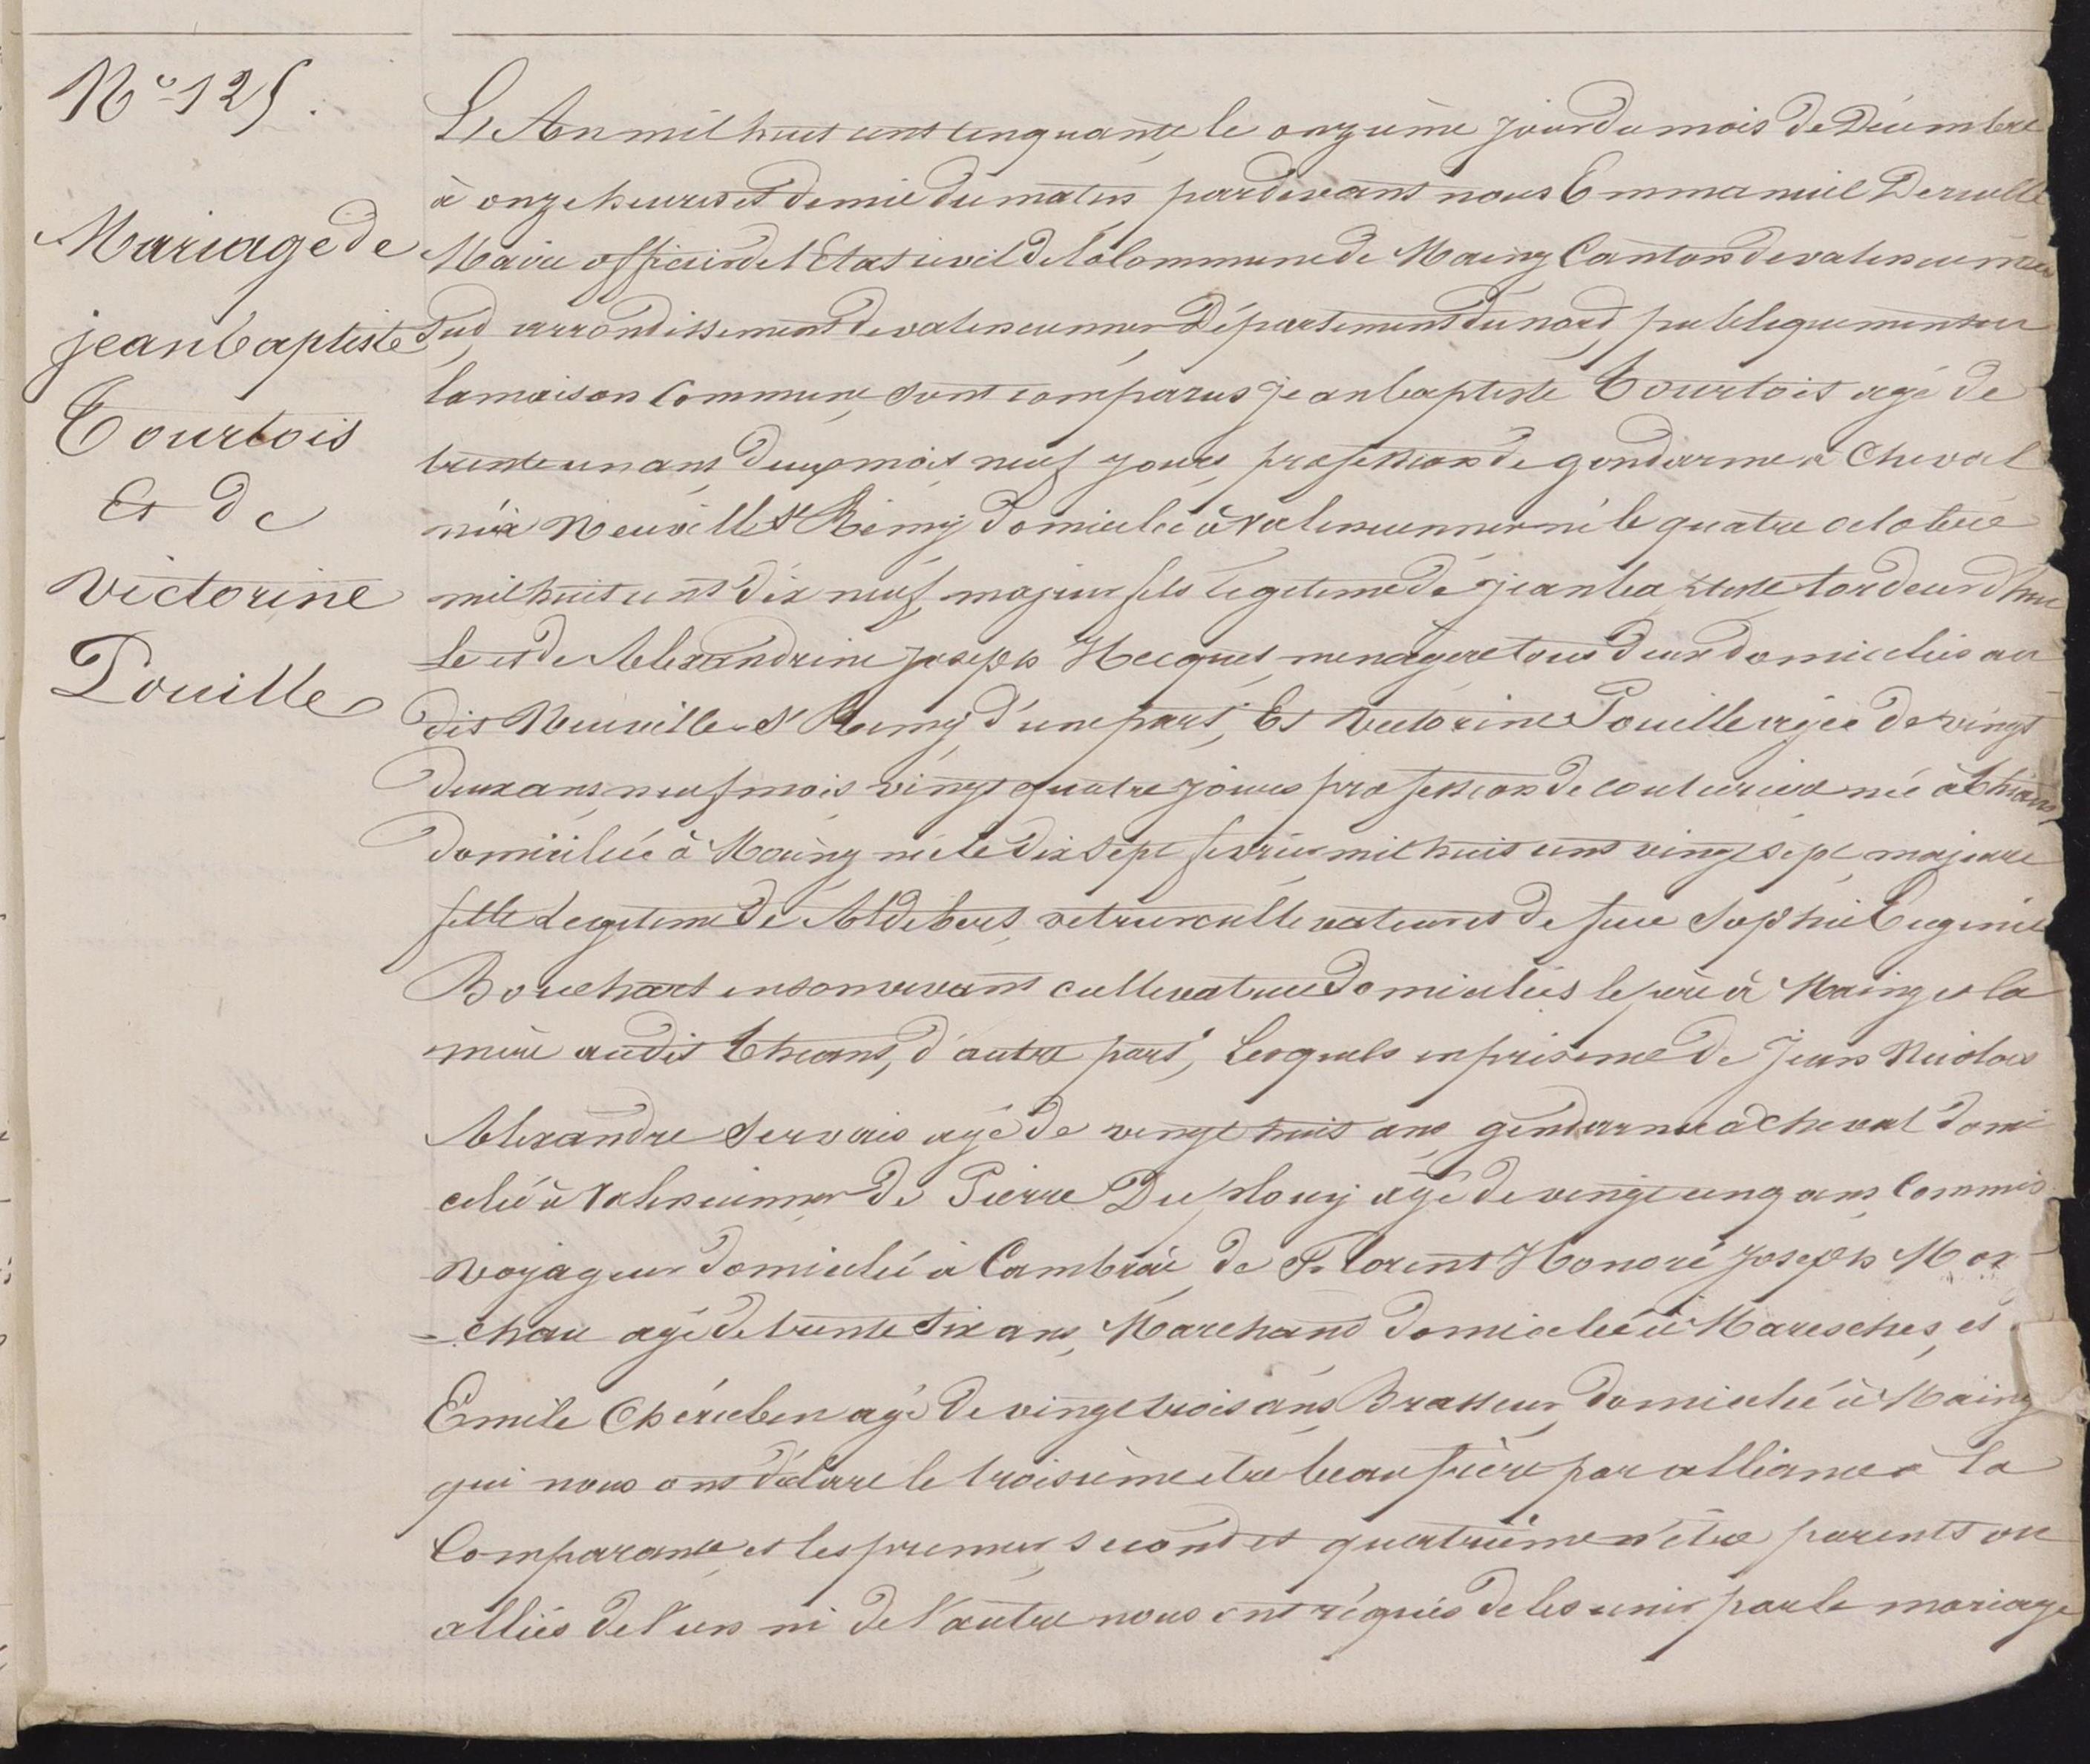 No 125.
Mariage de
jean baptiste
Courtois
Et de
victorine
Pouille
L'An mil huit cent cinquante le onzième jour du mois de Décembre
à onze heures et demie du matin pardevant nous Emmanuel
Maire officier de l'Etat civil de la Commune de Maing Canton de valenciennes
Sud arrondissement de valenciennes Département du nord, publiquement en
la maison Commune, sont comparus jean baptiste Courtois agé de
trente un ans deux mois neuf jours, profession de gendarme à Cheval
né à Neuville St Remy domicilié à Valenciennes né le quatre octobre
mil huit cent dix neuf, majeur fils legitime de jean baptiste tordeur d'hui
le et de Alexandrine joseph Hecquet, menagere tous deux domiciliés au
dit Neuville St Remy d'une part, Et Victorine Pouille agée de vingt
deux ans, neuf mois vingt quatre jours profession de couturiere née à thiant
domiciliée à Maing née le dix sept fevrier mil huit cent vingt sept, majeure
fille Legitime de Aldebert, cultivateur et de feue Sophie Eugenie
Bouchart en son vivant cultivatrice domiciliés le père à Maing et la
mère audit thiant, d'autre part, Lesquels en présence de Jean Nicolas
Alexandre Servais agé de vingt huit ans gendarme à Cheval domi
cilié à Valenciennes de Pierre Duplouy agé de vingt cinq ans, Commis
voyageur domicilié à Cambrai de Florent Honoré joseph Mar
-chau agé de trente six ans, Marchand domicilié à Maresches, et
Emile Chérubin agé de vingt trois ans Brasseur domicilié à Maing
qui nous ont déclaré le troisième etre beau frère par alliance à la
Comparante, et les premier, second et quatrième n'être parents ou
alliés de l'un ni de l'autre nous ont réquis de les unir par le mariage